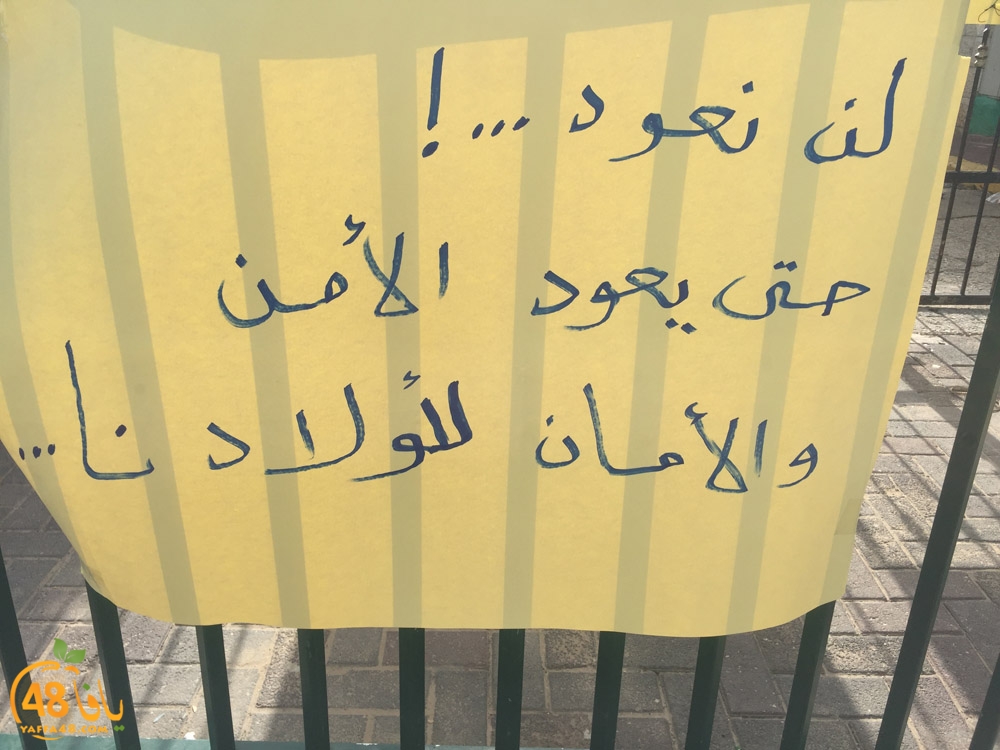 لن نعود...!
حتى يعود الأمن
والأمان للؤلادنا...
48 يافا
YAFA48.COM